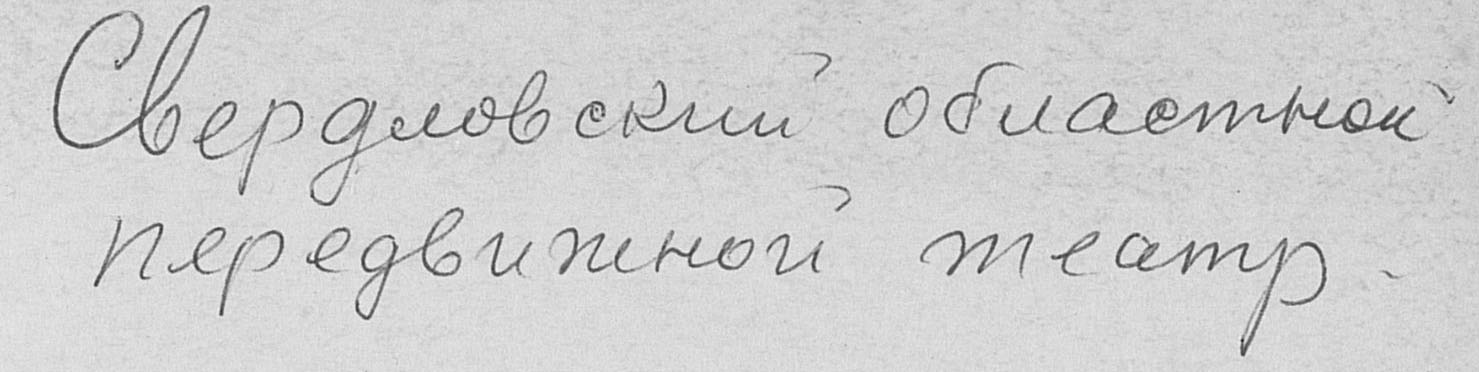 Свердловский областной
передвижной театр.